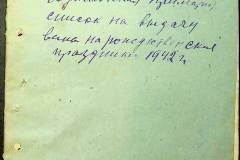 список на выдачу
вина на рождественские
праздники 1942 г